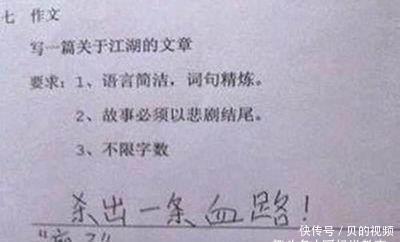 七 作文
写一篇关于江湖的文章
要求：1、语言简洁，词句精炼。
2、故事必须以悲剧结尾。
3、不限字数
杀出一条血路！
快传号 / 贝的视频